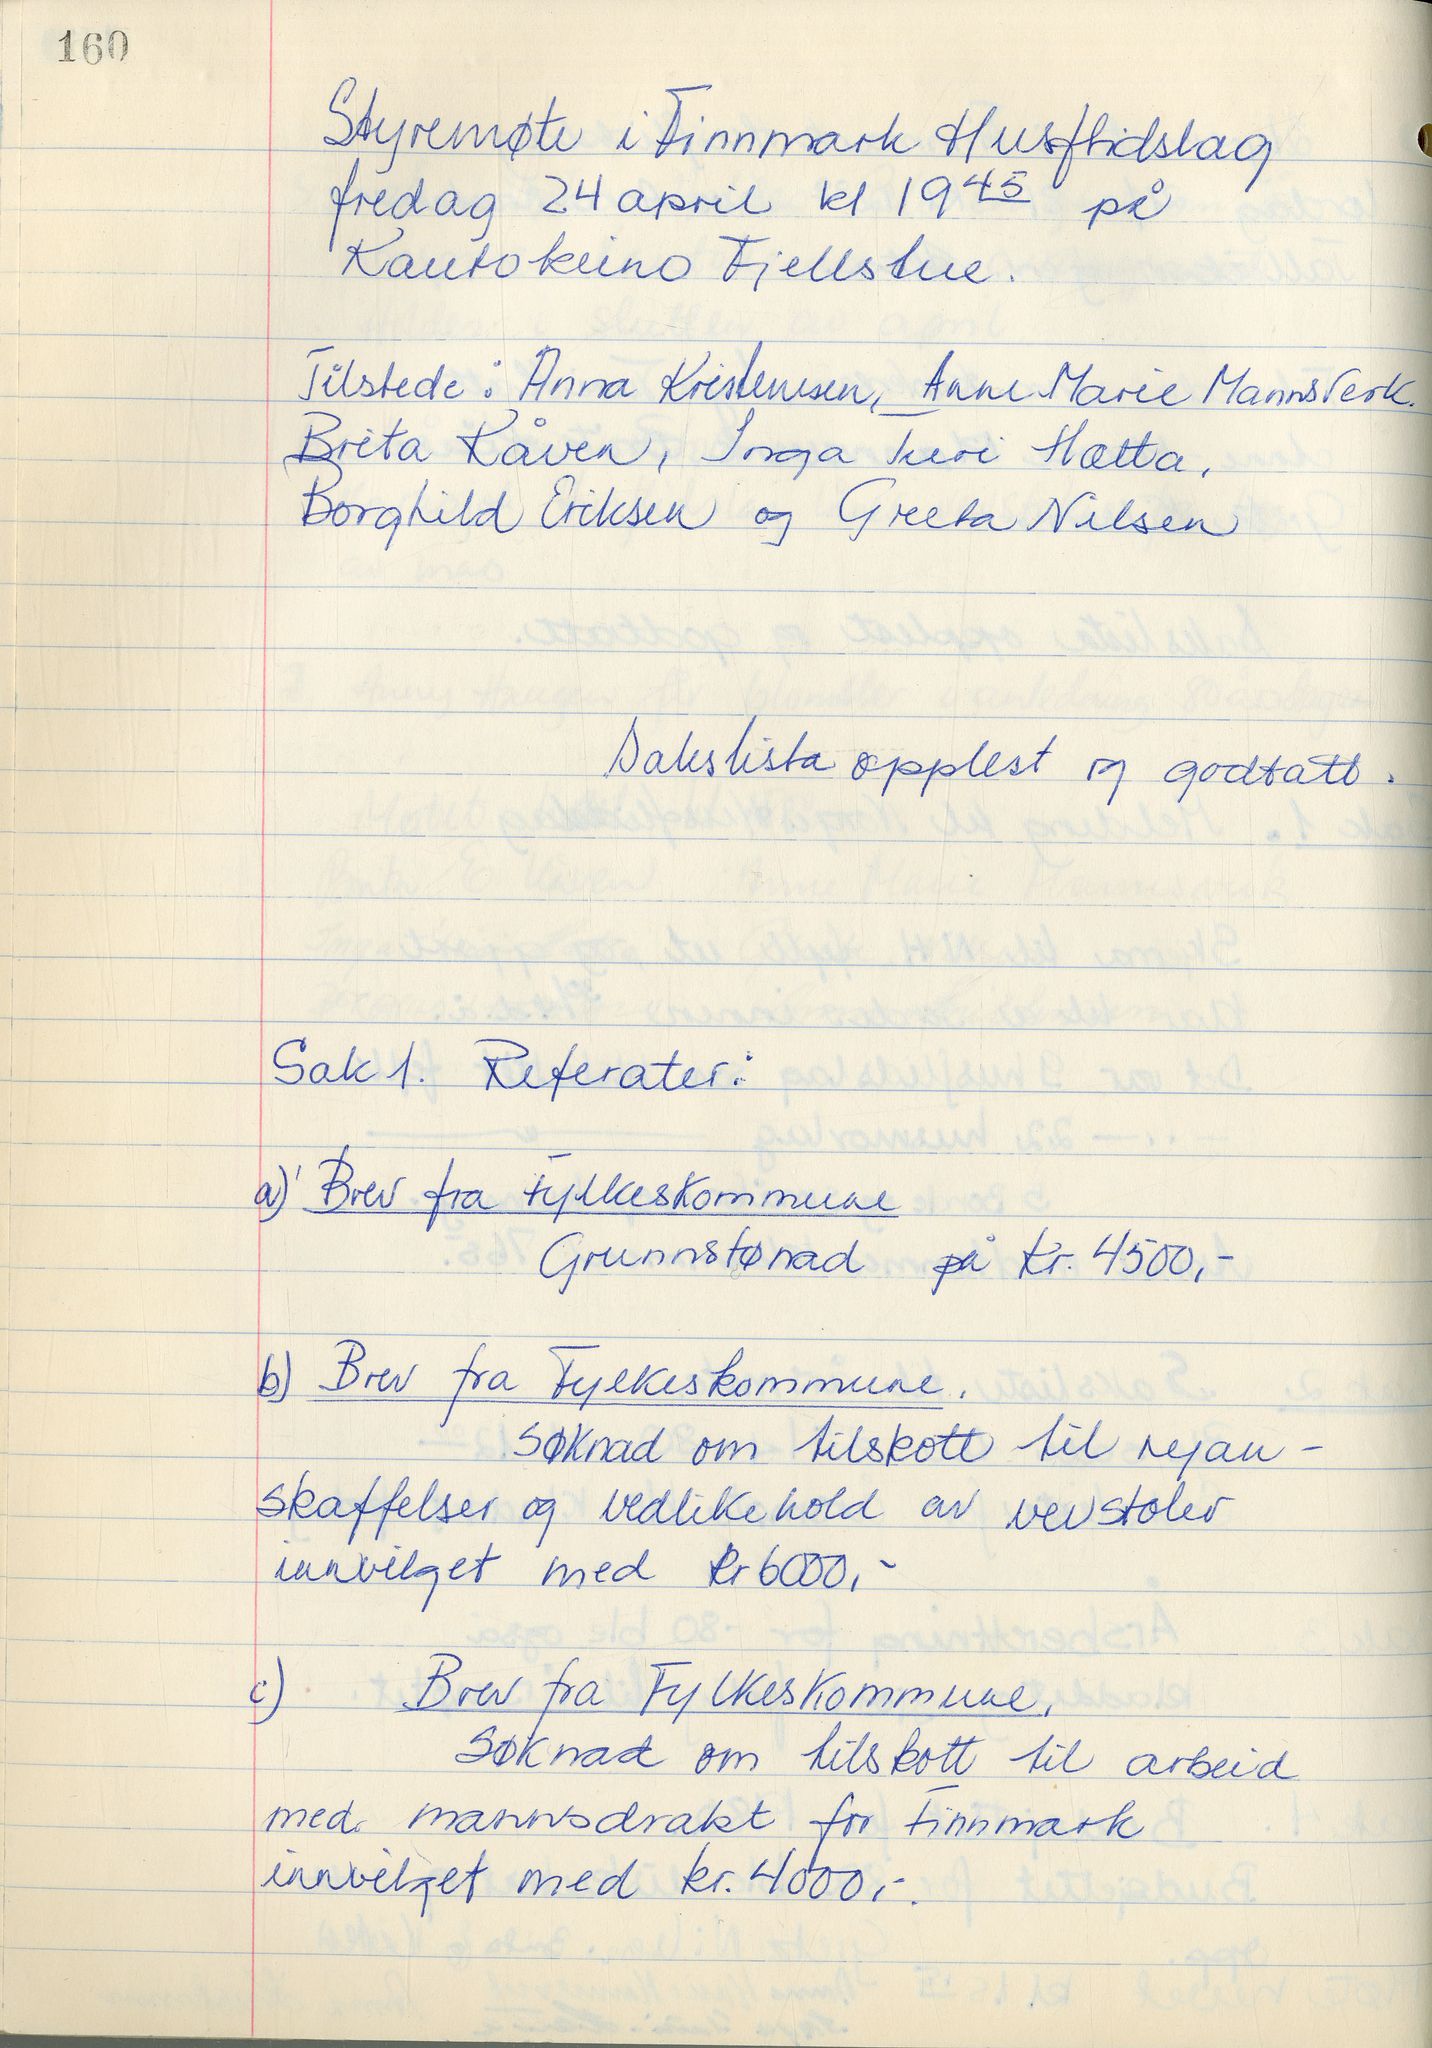 160
Styremøte i Finnmark Husflidslag
fredag 24 april kl 19 45 på
Kautokeino Fjellstue.
Tilstede: Anna Kristensen, Anne Marie Mannsverk.
Brita Kåven, Inga Juri Hætta,
Borghild Eriksen og Greta Nilsen
Sakslista opplest og godtatt.
Sak 1. Referater:
a) Brev fra Fylkeskommune
Grunnstønad på kr. 4500,-
b) Brev fra Fylkeskommune.
Søknad om tilskott til nyan-
skaffelser og vedlikehold av vevstoler
innvilget med kr 6000,-
c) Brev fra Fylkeskommune.
Søknad om tilskott til arbeid
med mannsdrakt for Finnmark
innvilget med kr. 4000,-.